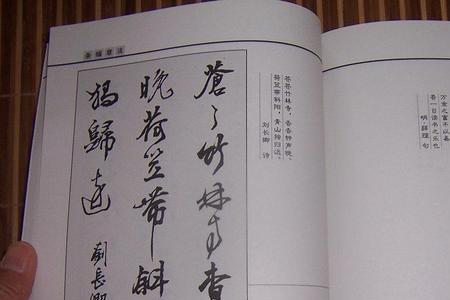 条幅章法
蒼々竹林寺杳
晚荷笠帶斜
獨歸遠
劉長卿
苍苍竹林寺，杳杳钟声晚。
荷笠带斜阳，青山独归远。
刘长卿 诗
万金之富不以易
吾一日读书之乐也